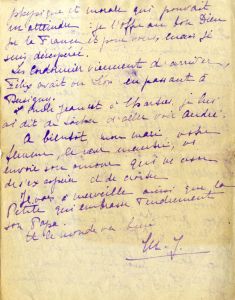 physique et morale qui pouvait
m'attendre : je l'offre au bon Dieu
pr la France et pour vous, mais je
suis désespérée.
Les Cordonnier viennent d'arriver
Félix avait vu Léon en passant à
Busigny.
Jeannet à Nantes, je lui
ai dit de tâcher d'aller voir André.
A bientôt mon mari votre
femme, le cœur meurtri, vs
envoie son amour qui ne cesse
de s'exposer et de croître
Je vais à merveille ainsi que la
Petite qui embrasse tendrement
son Papa.
Et le monde va bien